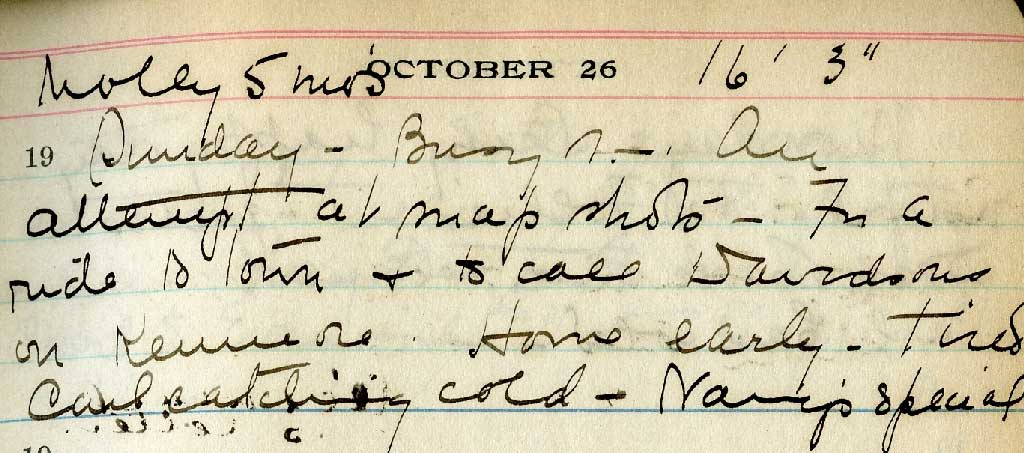 Molly 5 mo's OCTOBER 26 16' 3"
19 Sunday - Busy An
attempt at snap shots - For a
ride to Town & to call Davidsons
on Kenmore. Home early - Tired
Carl catching cold - special